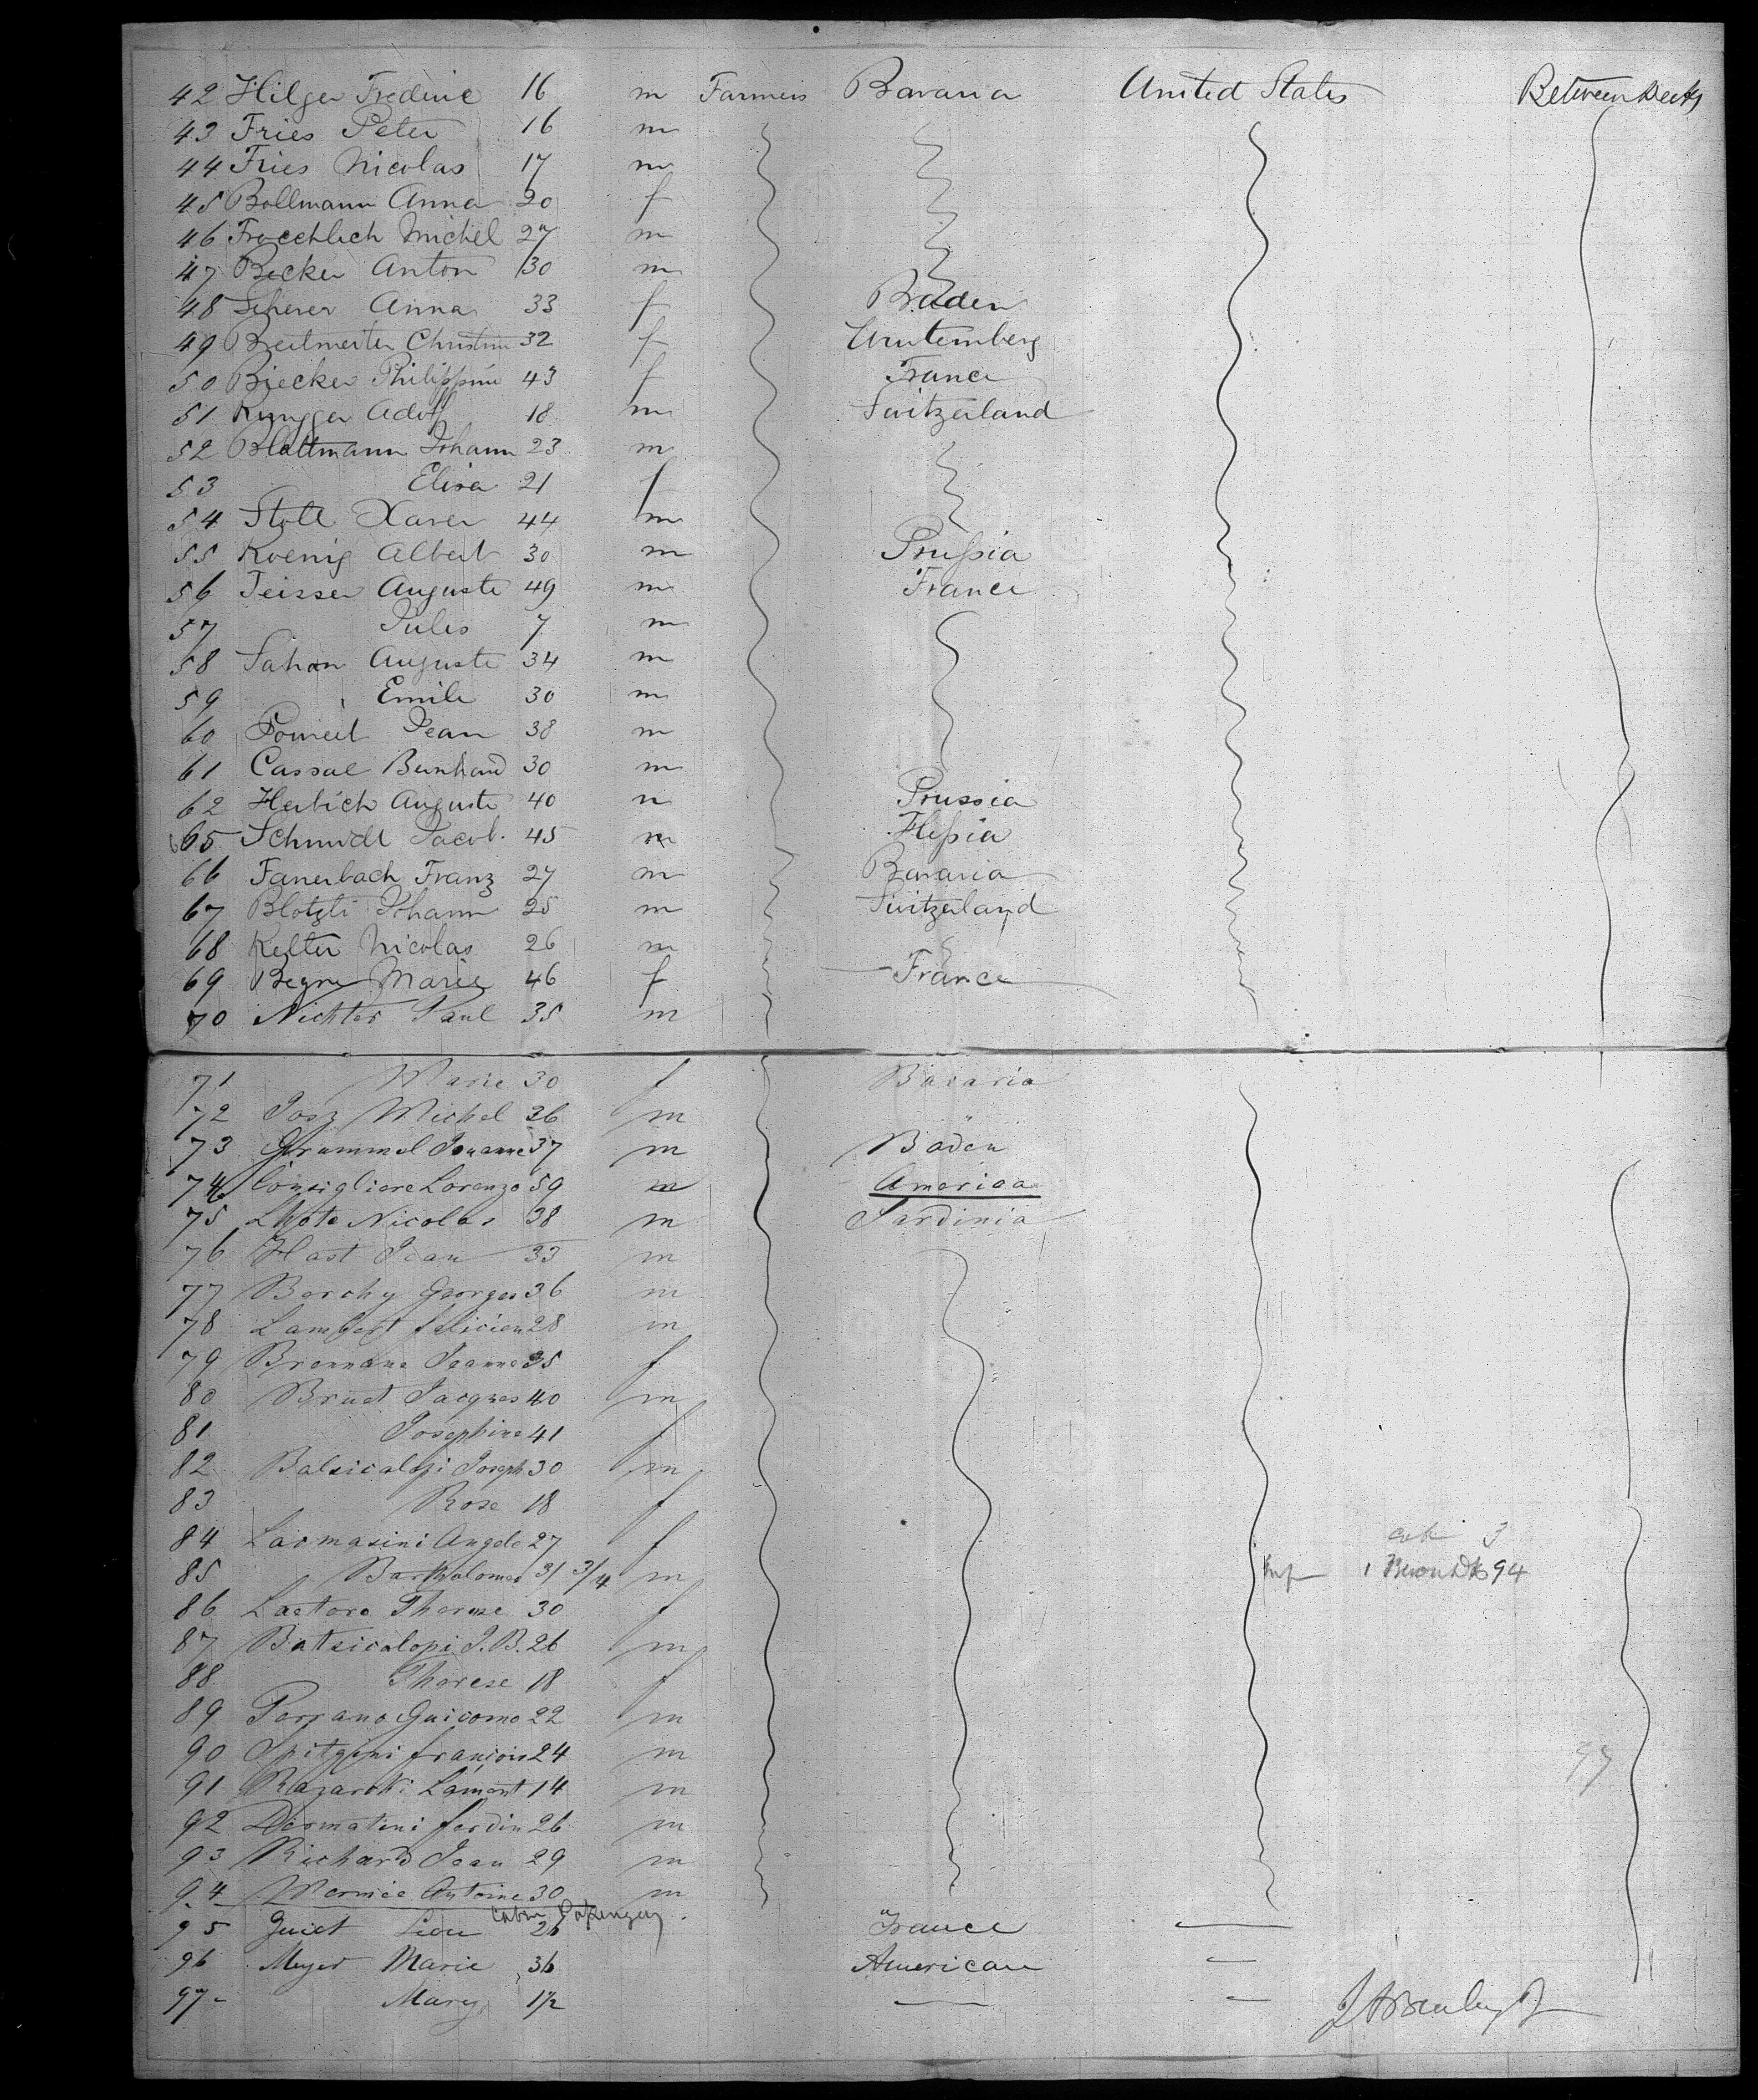 42 Hilger Frederic 16 m Farmers Bavaria United States Between Decks
43 Fries Peter 16 m
44 Fries Nicolas 17 m
45 Bollmann Anna 20 f
46 Froechlich Michel 27 m
47 Becker Anton 30 m
48 Scherer Anna 33 f Baden
49 Breitmeiter Christine 32 f Wurtemberg
50 Biecker Philippine 43 f France
51 Rungger Adolf 18 m Switzerland
52 Blattmann Johann 23 m
53 Elisa 21 f
54 Stoll Xaver 44 m
55 Koenig Albert 30 m Prussia
56 Teisser Auguste 49 m France
57 Jules 7 m
58 Sahon Auguste 34 m
59 Emile 30 m
60 Jean 38 m
61 Cassal Bernhard 30 m
62 Herbich Auguste 40 m Prussia
65 Schmidt Jacob 45 m Hessia
66 Fanerbach Franz 27 m Bavaria
67 Blotzli Johann 25 m Switzerland
68 Kelter Nicolas 26 m
69 Begne Marie 46 f France
70 Nichter Paul 35 m
71 Marie 30 f Bavaria
72 Josz Michel 36 m
73 Grummel Johanne 37 m Baden
74 Consigliere Lorenzo 59 m America
75 Lhote Nicolas 38 m Sardinia
76 Hast Jean 33 m
77 Berchy Georges 36 m
78 Lambert felicien 28 m
79 Brennane Jeanne 35 f
80 Bruet Jacques 40 m
81 Josephine 41 f
82 Balsicalopi Joseph 30 m
83 Rose 18 f
84 Larmasini Angele 27 f
85 Bartholomeo 3/ 3/4 m 1 94
86 Lastoro Therese 30 f
87 Batsicalopi J.B. 26 m
88 Therese 18 f
89 Porrano Guicomo 22 m
90 Spitzini françois 24 m 97
91 Razarotti Lamont 14 m
92 Dermatini ferdin 26 m
93 Richard Jean 29 m
94 Mermie Antoine 30 m
Cabin Passengers
95 Guiet Leon 26 France
96 Meyer Marie 36 American
97 Mary 1/2